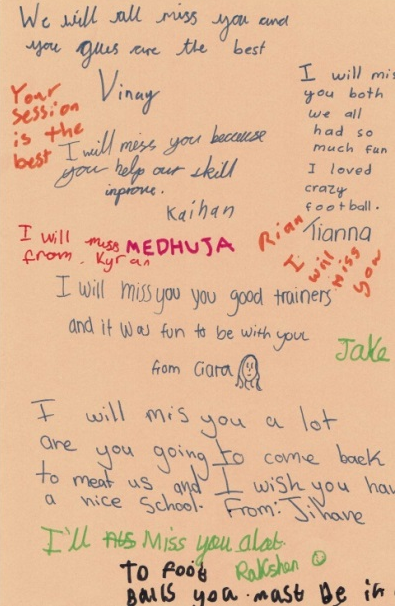 We will all miss you and
you guys are the best
Vinay
Your
session
is the
best
I will mis
you both
we all
had so
much fun
I loved
crazy
football.
Tianna
I will miss you because
you help our skill
inprove.
Kaihan
I will miss
from. Kyran
MEDHUJA
Rian
I will miss you
I will miss you you good trainers
and it was fun to be with you
from Ciara
Jake
I will mis you a lot
are you going to come back
to meat us and I wish you hav
a nice school. From: Jihane
I'll Miss you alot
Rakshan
To foot
balls you mast be in